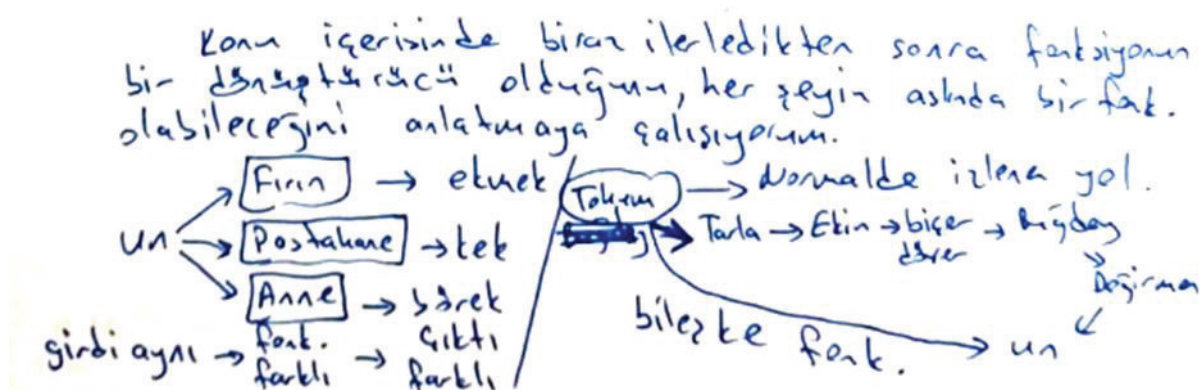 Konu içerisinde biraz ilerledikten sonra fonksiyonun
bir dönüştürücü olduğunu, her şeyin aslında bir fonk.
olabileceğini anlatmaya çalışıyorum.
un
Fırın → ekmek
Postahane → kek
Anne → börek
girdi aynı → fonk. farklı → çıktı farklı
Tohum → Normalde izlenen yol.
→ Tarla → Ekin → biçer döver → Buğday
Değirmen
bileşke fonk. → un